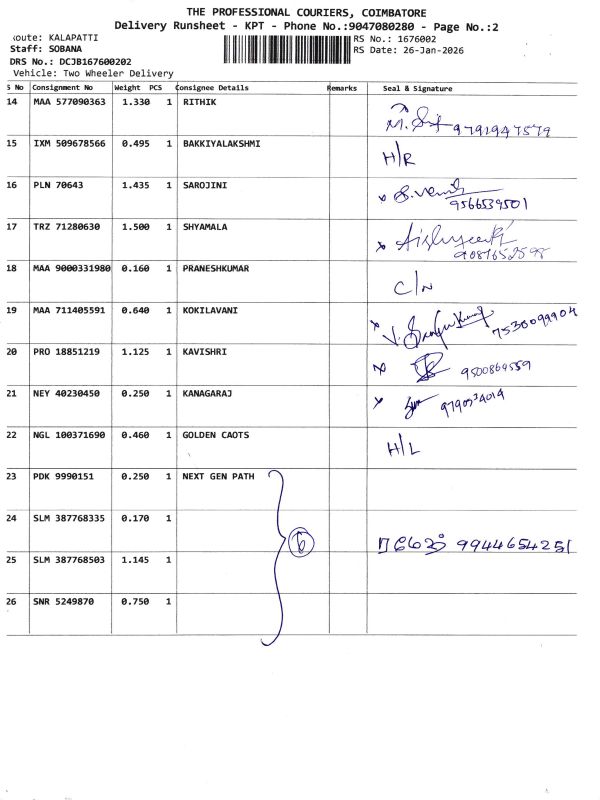 THE PROFESSIONAL COURIERS, COIMBATORE
Delivery Runsheet - KPT - Phone No.:9047080280 - Page No.:2
Route: KALAPATTI RS No.: 1676002
Staff: SOBANA RS Date: 26-Jan-2026
DRS No.: DCJB167600202
Vehicle: Two Wheeler Delivery
S No Consignment No Weight PCS Consignee Details Remarks Seal & Signature
14 MAA 577090363 1.330 1 RITHIK
9791947579
15 IXM 509678566 0.495 1 BAKKIYALAKSHMI H/R
16 PLN 70643 1.435 1 SAROJINI
9566539501
17 TRZ 71280630 1.500 1 SHYAMALA
9087652598
18 MAA 9000331980 0.160 1 PRANESHKUMAR C/N
19 MAA 711405591 0.640 1 KOKILAVANI 7530099904
20 PRO 18851219 1.125 1 KAVISHRI 9500864559
21 NEY 40230450 0.250 1 KANAGARAJ
22 NGL 100371690 0.460 1 GOLDEN CAOTS H/L
23 PDK 9990151 0.250 1 NEXT GEN PATH
24 SLM 387768335 0.170 1 9944654251
25 SLM 387768503 1.145 1
26 SNR 5249870 0.750 1